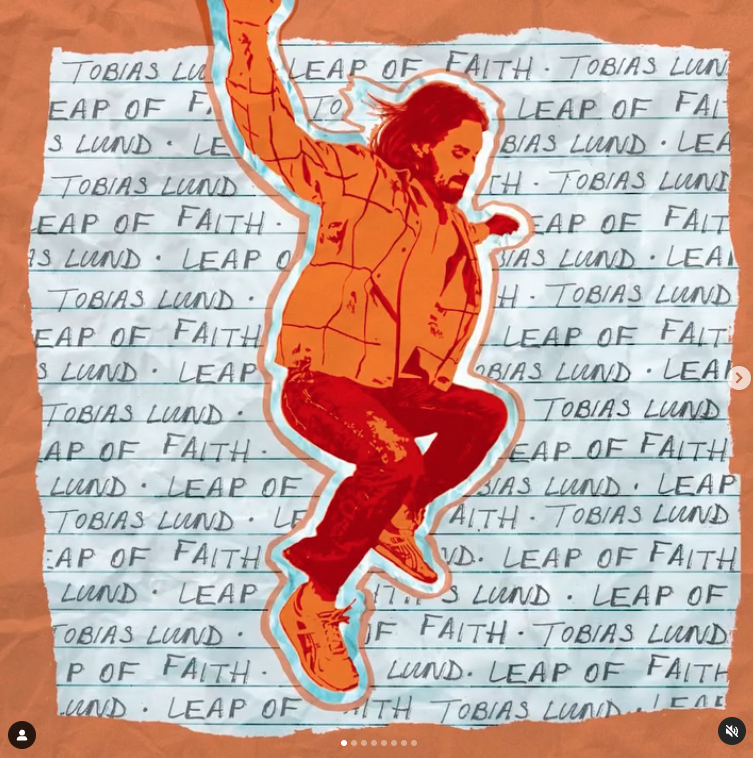 TOBIAS LU LEAP OF FAITH · TOBIAS LUN
EAP OF FA TO LEAP OF FAI
S LUND · LE BIAS LUND · LEA
TOBIAS LUND TH · TOBIAS LUND
LEAP OF FAITH · EAP OF FAIT
AS LUND · LEAP O IAS LUND · LEA
TOBIAS LUND · H · TOBIAS LUND
EAP OF FAITH LEAP OF FAIT
S LUND · LEAP OBIAS LUND · LEAF
TOBIAS LUND · TOBIAS LUND
AP OF FAITH · EAP OF FAITH
LUND · LEAP OF BIAS LUND · LEAP
TOBIAS LUND · LE AITH · TOBIAS LUND
EAP OF FAITH ND · LEAP OF FAITH
LUND · LEAP S LUND · LEAP OF
TOBIAS LUND · OF FAITH · TOBIAS LUND
P OF FAITH · LUND · LEAP OF FAITH
LUND · LEAP OF AITH TOBIAS LUND · LEAP